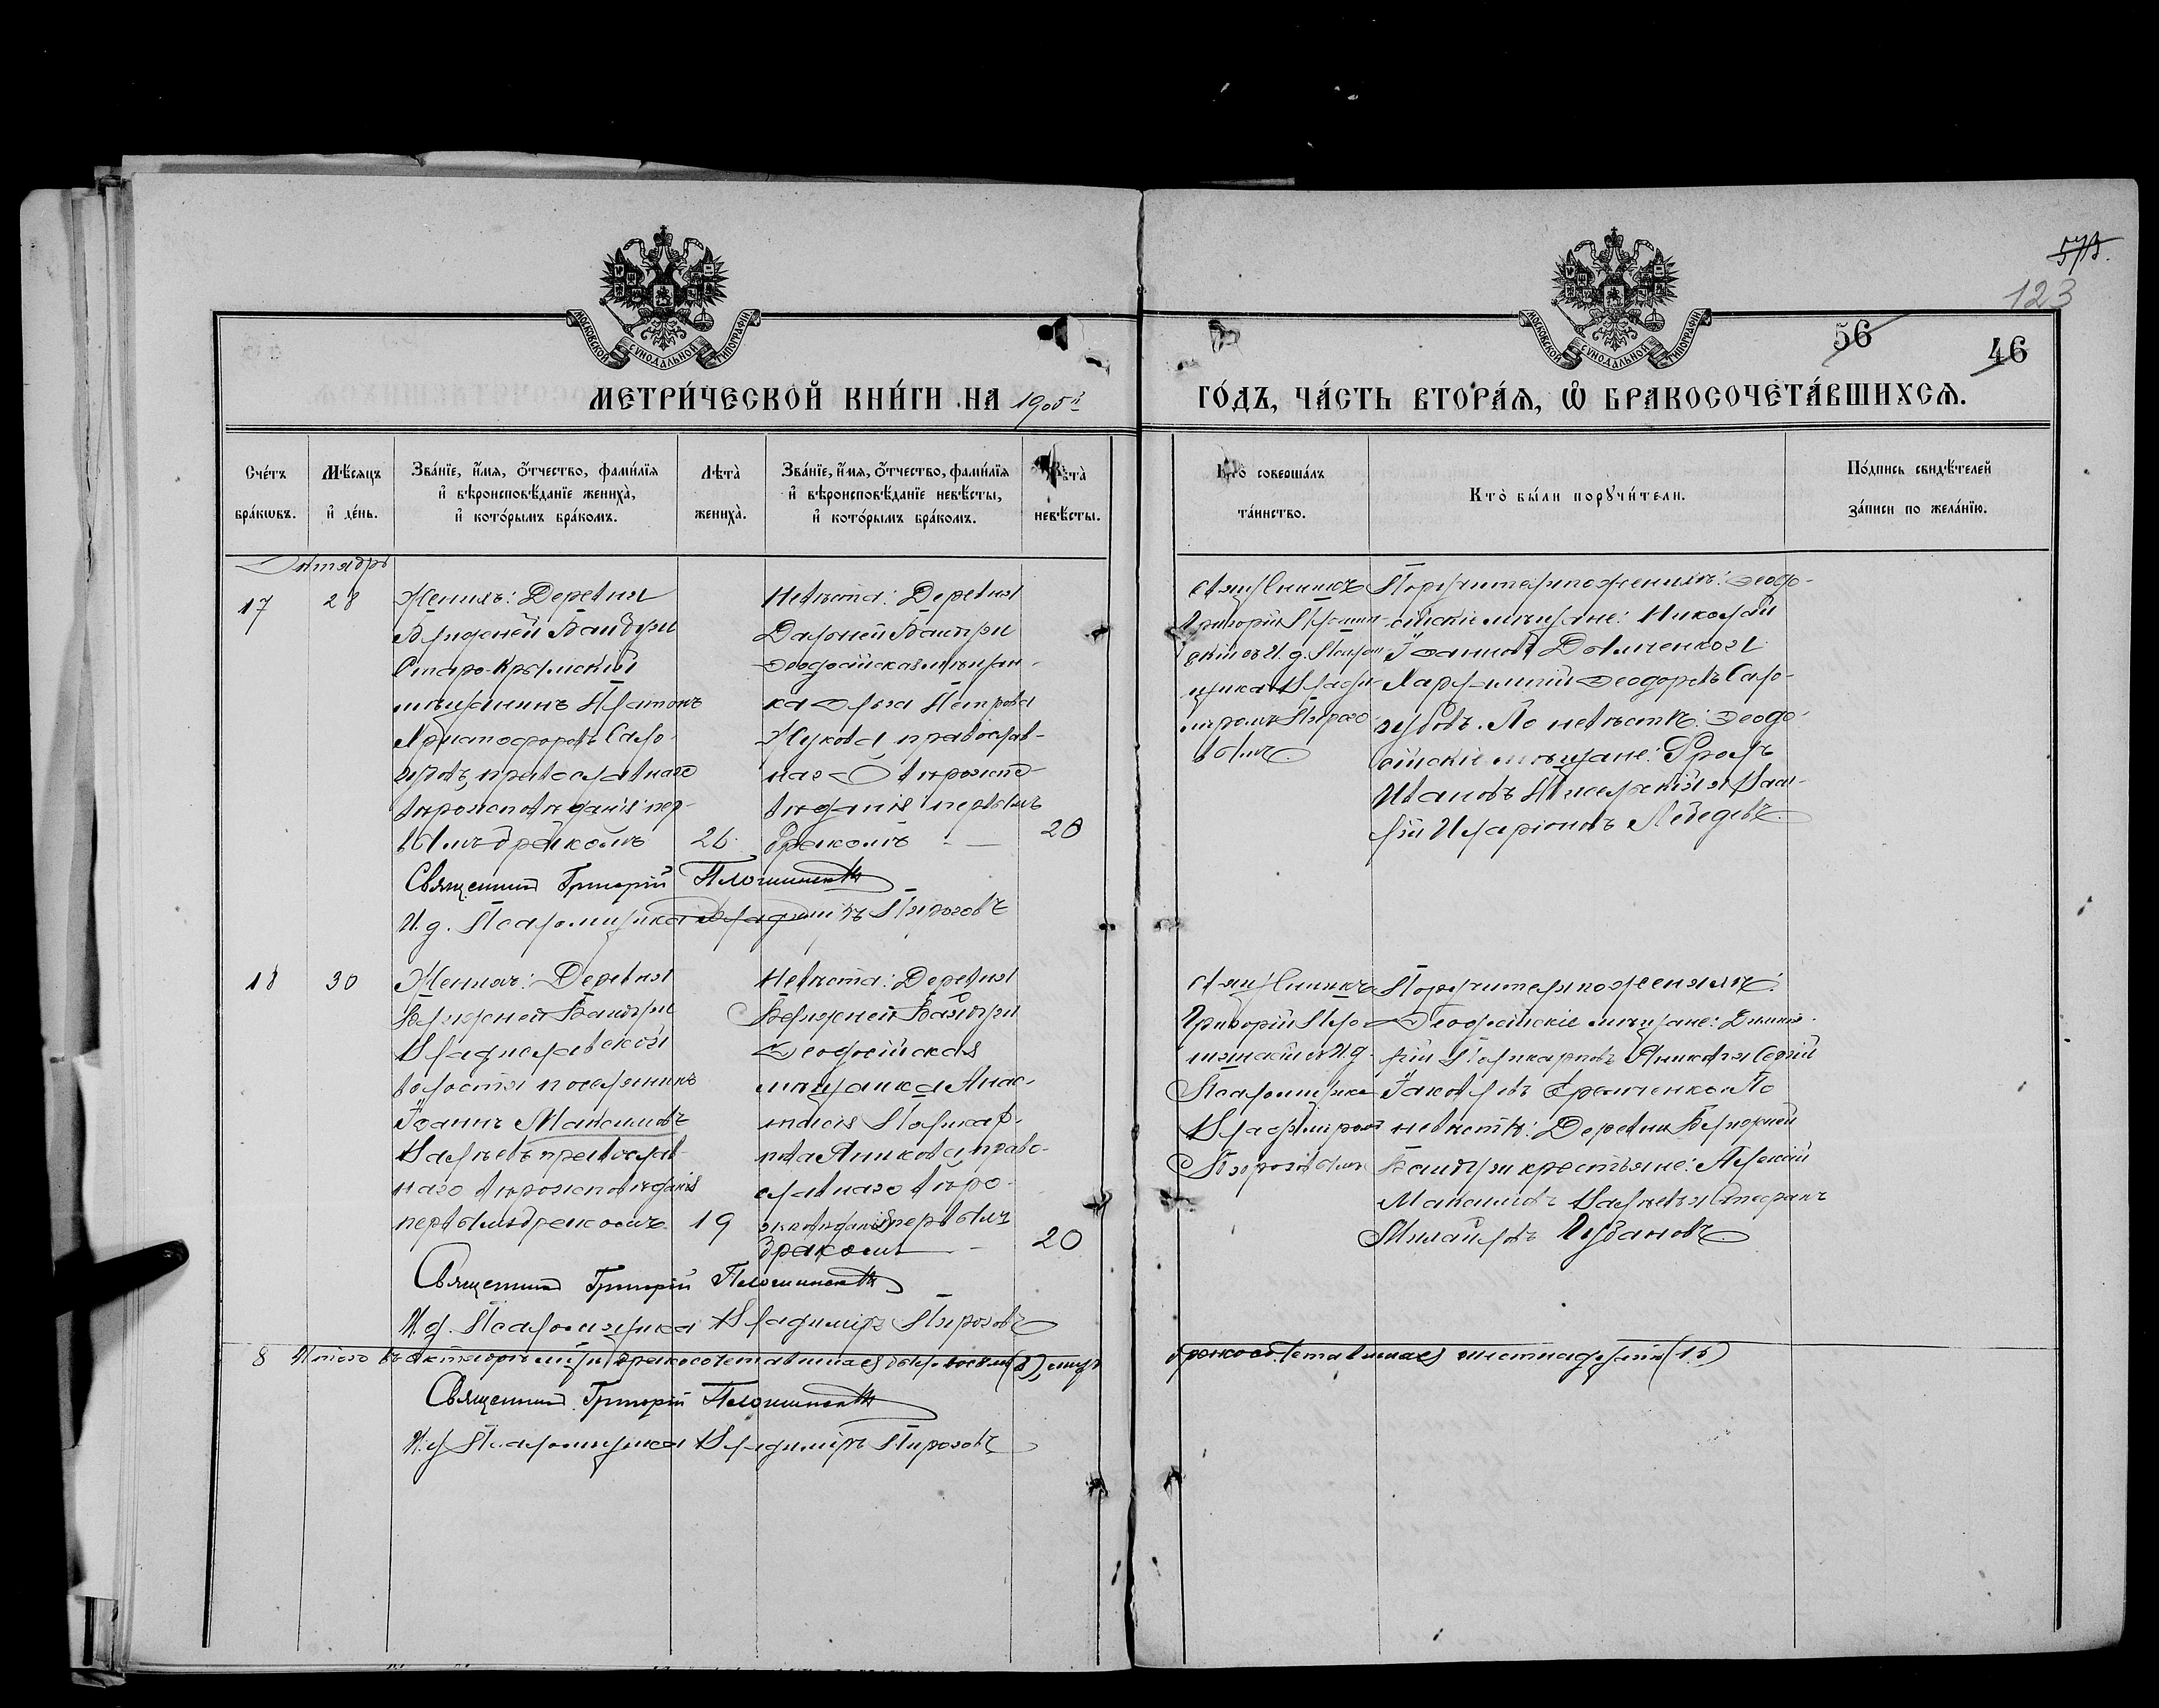 57В.
123
56
46
МОСКОВСКОЙ СѴНОДАЛЬНОЙ ТИПОГРАФІИ
МОСКОВСКОЙ СѴНОДАЛЬНОЙ ТИПОГРАФІИ
МЕТРИ́ЧЕСКОЙ КНИ́ГИ НА 1905й
ГО́ДЪ, ЧА́СТЬ ВТОРА́Ѧ, Ѽ БРАКОСОЧЕТА́ВШИХСѦ.
Сче́тъ
бра́кѡвъ.
Мѣ́сяцъ
и҆ де́нь.
Зва́нїе, и҆́мя, ѻ҆́тчество, фами́лїя
и҆ вѣроисповѣ́данїе жениха̀,
и҆ кото́рымъ бра́комъ.
Лѣта̀
жениха̀.
Зва́нїе, и҆́мя, ѻ҆́тчество, фами́лїя
и҆ вѣроисповѣ́данїе невѣ́сты,
и҆ кото́рымъ бра́комъ.
Лѣта̀
невѣ́сты.
Кто̀ соверша́лъ
та́инство.
Кто̀ бы́ли порꙋчи́тели.
По́дпись свидѣ́телей
за́писи по жела́нїю.
Октябрь
17
28
Женихъ: Деревни
Ближней Байбуги
Старо-Крымскій
мѣщанинъ Платонъ
Христофоровъ Сало-
губовъ, православнаго
вѣроисповѣданія пер-
вымъ бракомъ
26.
Невѣста: Деревни
Дальней Байбуги
Ѳеодосійская мѣщан-
ка Ольга Петрова
Жукова, православ-
наго вѣроиспо-
вѣданія первымъ
бракомъ
20
Священникъ
Григорій
съ И. д. Псалом-
щика Влади-
міромъ Пирого-
вымъ
Поручители по женихѣ: Ѳеодо-
сійскіе мѣщане: Николай
Іоанновъ
Харлампій Ѳеодоровъ Сало-
губовъ. По невѣстѣ: Ѳеодо-
сійскіе мѣщане: Фролъ
Ивановъ
Иларіоновъ Лебедевъ
Священникъ Григорій
И. д. Псаломщика Владиміръ Пироговъ
18
30
Женихъ: Деревни
Ближней Байбуги
Владиславской
волости поселянинъ
Іоаннъ Максимовъ
православ-
наго вѣроисповѣданія
первымъ бракомъ
19
Невѣста: Деревни
Ближней Байбуги
Ѳеодосійская
мѣщанка Анас-
тасія Поликар-
пова Аникова, право-
славнаго вѣро-
первымъ
бракомъ
20
Священникъ
Григорій
съ И. д.
Псаломщика
Владиміромъ
Пироговымъ
Поручители по женихѣ:
Ѳеодосійскіе мѣщане:
Поликарповъ Аниковъ и
Іаковлевъ По
невѣстѣ: Деревни Ближней
Байбуги крестьяне: Алексій
Максимовъ и Стефанъ
Михайловъ
Священникъ Григорій
И. д. Псаломщика Владиміръ Пироговъ
8 Итого въ октябрѣ мѣсяцѣ бракосочетавшихся было восемь (8),
бракосочетавшихся шестнадцать (16)
Священникъ Григорій
И. д. Псаломщика Владиміръ Пироговъ